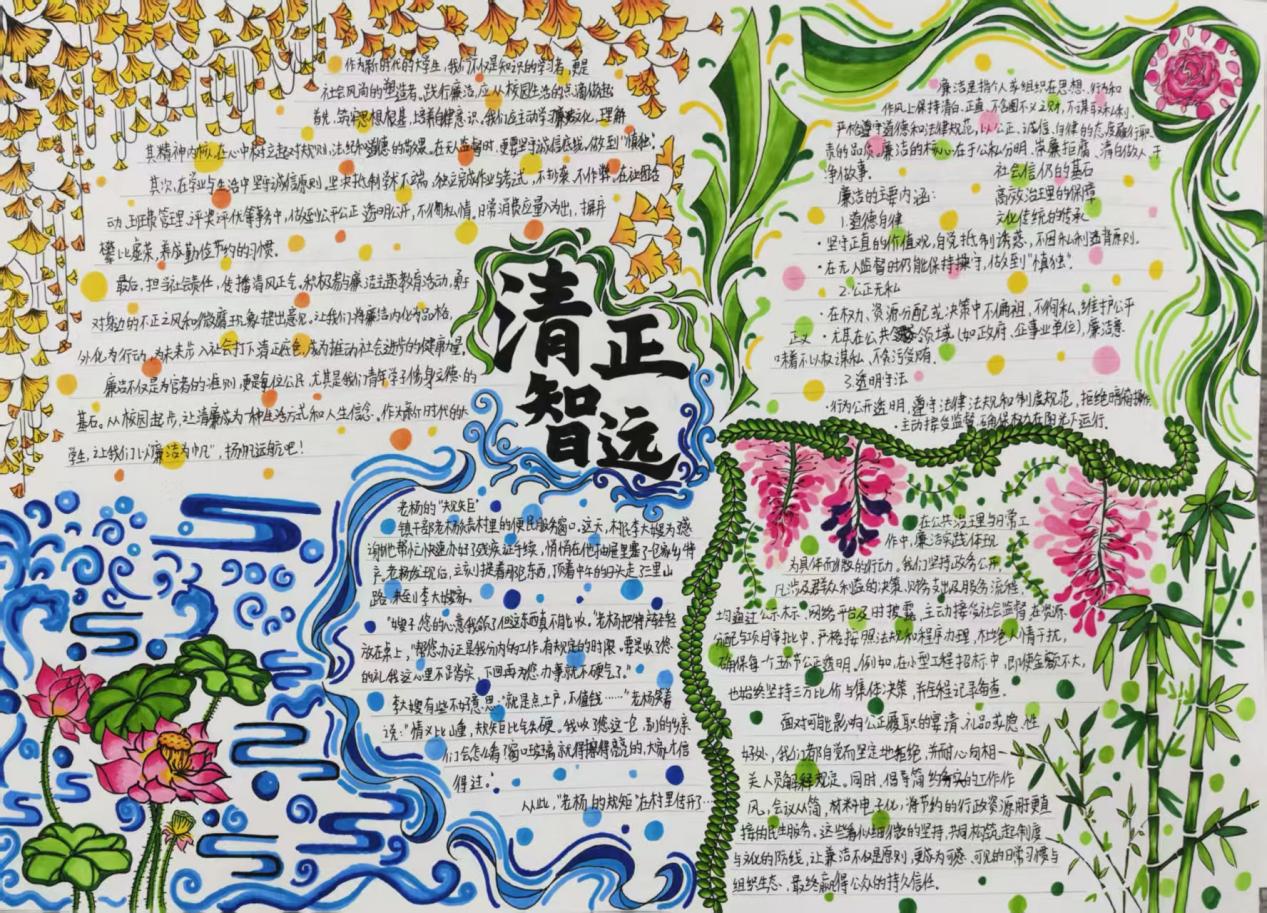 作为新时代的大学生，我们不仅是知识的学习者，更是
社会风尚的塑造者。践行廉洁，应从校园生活的点滴做起
首先，筑牢思想根基，培养自律意识。我们应主动学习廉政文化，理解
其精神内核，在心中树立起对规则、法纪和道德的敬畏。在无监督时，更要坚守诚信底线，做到"慎独"。
其次，在学业与生活中坚守诚信原则，坚决抵制学术不端，独立完成作业与考试，不抄袭、不作弊。在社团活
动、班级管理、评奖评优等事务中，做到公平公正、透明公开，不徇私情。日常消费应量入为出，摒弃
攀比虚荣，养成勤俭节约的习惯。
最后，担当社会责任，传播清风正气。积极参与廉洁主题教育活动，勇于
对身边的不正之风和微腐败现象提出意见。让我们将廉洁内化为品格，
外化为行动，为未来步入社会打下清正底色，成为推动社会进步的健康力量。
廉洁不仅是为官者的准则，更是每位公民，尤其是我们青年学子修身立德的
基石。从校园起步，让清廉成为一种生活方式和人生信念。作为新时代的大
学生，让我们以"廉洁为帆"，扬帆远航吧！
清正
智远
廉洁是指个人或组织在思想、行为和
作风上保持清白、正直，不贪图不义之财，不谋求私利，
严格遵守道德和法律规范，以公正、诚信、自律的态度履行职
责的品质。廉洁的核心在于公私分明、崇廉拒腐、清白做人、干
净做事。
社会信仍的基石
廉洁的主要内涵：
高效治理的保障
1.道德自律
文化传统的传承
·坚守正直的价值观，自觉抵制诱惑，不因私利违背原则。
·在无人监督时仍能保持操守，做到"慎独"。
2.公正无私
·在权力、资源分配或决策中不偏袒、不徇私，维护公平
正义。尤其在公共领域（如政府、企事业单位），廉洁意
味着不以权谋私、不贪污受贿。
3.透明守法
·行为公开透明，遵守法律法规和制度规范，拒绝暗箱操作
·主动接受监督，确保权力在阳光下运行。
老杨的"规矩"
镇干部老杨负责村里的便民服务窗口。这天，村民李大嫂为感
谢他帮忙快速办好了残疾证手续，悄悄在他抽屉里塞了一包家乡特
产。老杨发现后，立刻提着那包东西，顶着中午的日头走了三里山
路，来到李大嫂家。
"嫂子，您的心意我领了，但这东西真不能收。"老杨把特产轻轻
放在桌上，"帮您办证是我分内的工作，有规定的时限。要是收了您
的礼，我这心里不踏实，下回再为您办事就不硬气了。"
李大嫂有些不好意思："就是点土产，不值钱……"老杨笑着
说："情义比山重，规矩比铁硬。我收了您这一包，别的乡亲
们会怎么看？窗口玻璃就得擦得亮亮的，大家才信
得过。"
从此，"老杨的规矩"在村里传开了…
在公共治理与日常工
作中，廉洁实践体现
为具体而微的行动。我们坚持政务公开，
凡涉及群众利益的决策、财务支出及服务流程，
均通过公示栏、网络平台及时披露，主动接受社会监督。在资源
分配与项目审批中，严格按照法规和程序办理，杜绝人情干扰，
确保每个环节公正透明。例如，在小型工程招标中，即使金额不大，
也始终坚持三方比价与集体决策，并全程记录备查。
面对可能影响公正履职的宴请、礼品或隐性
好处，我们都自觉而坚定地拒绝，并耐心向相
关人员解释规定。同时，倡导简约务实的工作作
风，会议从简，材料电子化，将节约的行政资源用于更直
接的民生服务。这些看似细微的坚持，共同构筑起制度
与文化的防线，让廉洁不仅是原则，更成为可感、可见的日常习惯与
组织生态，最终赢得公众的持久信任。